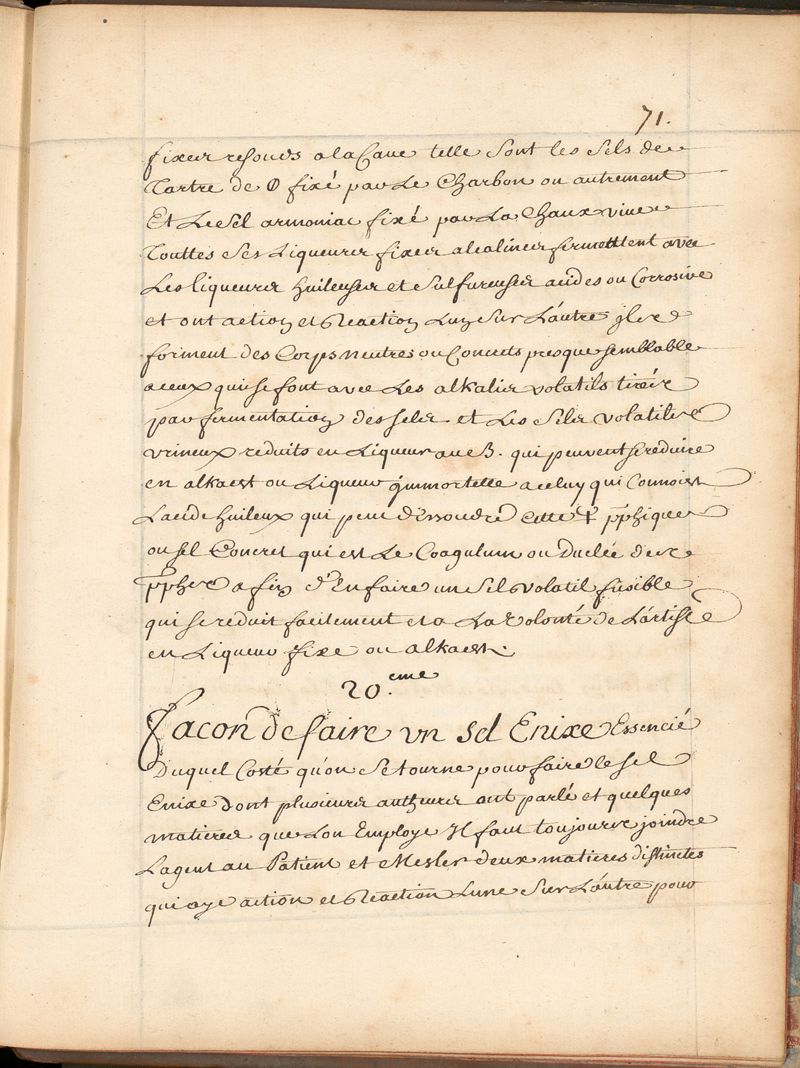 71.
fixes resouds a la Cave telle sont les sels de
Tartre de 🜔 fixé par le Charbon ou autrement
Et le sel armoniac fixé par la Chaux vive
Touttes ses Liqueures fixes alcalines fermettent avec
Les liqueures huileuses et sulfureuses acides ou Corrosive
et ont action et Reaction Lun sur Lautre ils
forment des Corps neutres ou Concrets presque semblable
a ceux qui se font avec Les alkalis volatils tirés
par fermentation des sels et Les sels volatils
vrineux reduits en Liqueur au B. qui peuvent se reduire
en alkaest ou Liqueur jmmortelle a celuy qui Connoist
Lacide huileux qui peut dissoudre cette phique
ou sel Concret qui est Le Coagulum ou Duelée des
pphes afin d'En faire un sel volatil fusible
qui se reduit facilement et a La volonté de Lartiste
en Liqueur fixe ou alkaest.
20.eme
facon de faire vn sel Enixe Essencié
Duquel Costé qu'on se tourne pour faire le sel
Enixe dont plusieurs autheurs ont parlé et quelques
matieres que Lon Employe Il faut toujours joindre
Lagent au Patient et Mesler deux matieres distinctes
qui aye action et Reaction Lune sur Lautre pour